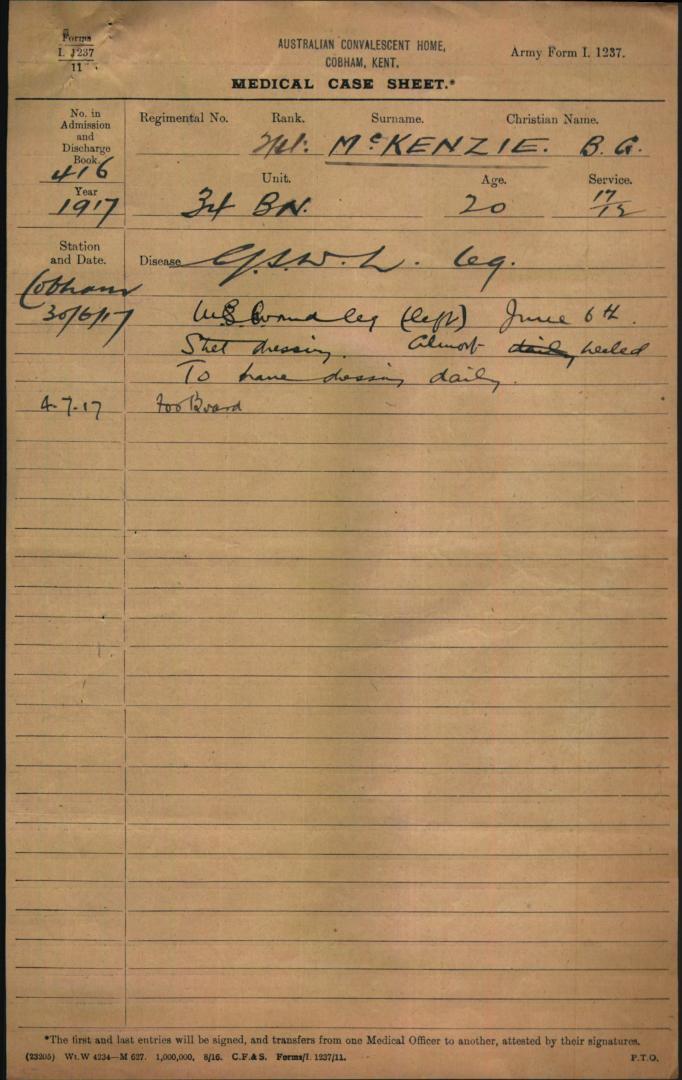 Forms
I. 1237
11
AUSTRALIAN CONVALESCENT HOME,
COBHAM, KENT.
Army Form I. 1237.
MEDICAL CASE SHEET.*
No. in
Admission
and
Discharge
Book.
416
Year
1917
Regimental No. Rank. Surname. Christian Name.
McKENZIE. B. G.
Unit. Age. Service.
34 BN. 20 17/12
Station
and Date.
Disease G.S.W. L. leg.
Cobham
30/6/17
wound leg (left) June 6th.
dressing. Almost daily healed
To have dressing daily.
4-7-17 For Board
*The first and last entries will be signed, and transfers from one Medical Officer to another, attested by their signatures.
(23205) Wt. W 4234—M 627. 1,000,000. 8/16. C.F.& S. Forms/I. 1237/11. P.T.O.